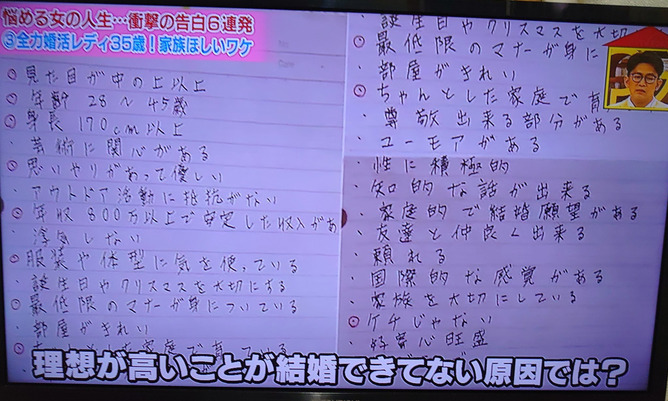 悩める女の人生…衝撃の告白6連発
③全力婚活レディ35歳！家族ほしいワケ
見た目が中の上以上
年齢 28〜45歳
身長 170cm以上
芸術に関心がある
思いやりがあって優しい
アウトドア活動に抵抗がない
年収 800万以上で安定した収入があ
浮気しない
服装や体型に気を使っている
誕生日やクリスマスを大切にする
最低限のマナーが身についている
部屋がきれい
ちゃんとした家庭で育っている
誕生日やクリスマスを大切
最低限のマナーが身に
部屋がきれい
ちゃんとした家庭で育
尊敬出来る部分がある
ユーモアがある
性に積極的
知的な話が出来る
家庭的で結婚願望がある
友達と仲良く出来る
頼れる
国際的な感覚がある
家族を大切にしている
ケチじゃない
好奇心旺盛
理想が高いことが結婚できてない原因では？